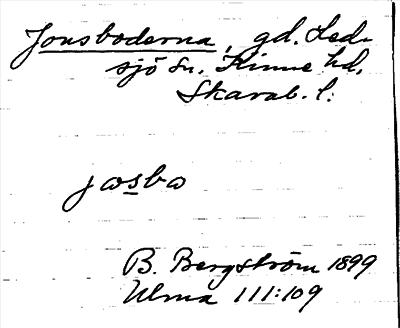 Jonsboderna, gd. Led-
sjö sn. Kinne hd.
Skarab. l:
josbo
B. Bergström 1899
Ulma 111:109